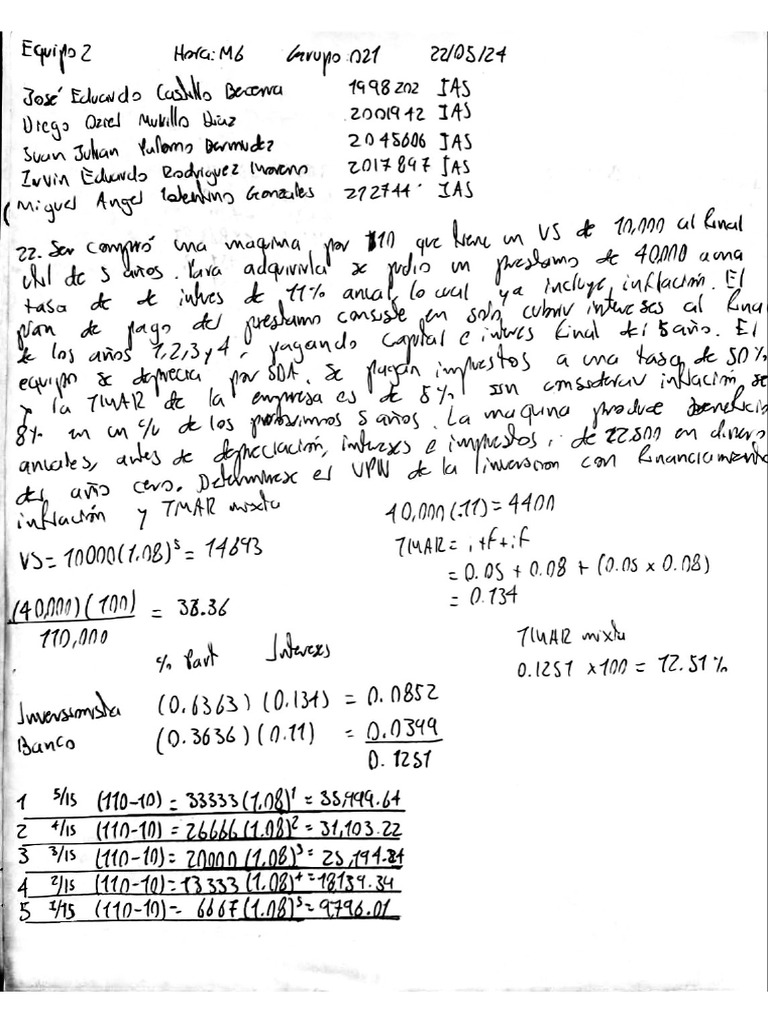 Equipo 2 Hora: M6 Grupo: 021 22/05/24
José Eduardo Castillo Becerra 1998202 IAS
Diego Oziel Murillo Diaz 2001942 IAS
Juan Julian Bermudez 2045606 IAS
Irvin Eduardo Rodriguez Moreno 2017897 IAS
Miguel Angel Gonzales IAS
22. Ser compró una maquina por $110 que tiene un VS de 10,000 al final
util de 5 años. Para adquirirla se pidio un prestamo de 40,000 a una
tasa de de interes de 11% anual, lo cual ya incluye inflación. El
plan de pago del prestamo consiste en solo cubrir intereses al final
de los años 1,2,3 y 4, pagando capital e interes final del 5 año. El
equipo se deprecia por SDA. Se pagan impuestos a una tasa de 50%
y la TMAR de la empresa es de 5% sin considerar inflación, se
8% en c/u de los proximos 5 años. La maquina produce beneficio
anuales, antes de depreciación, intereses e impuestos, de 22.500 en dinero
del año cero. Determinese el VPN de la inversion con financiamiento
inflación y TMAR mixta
40,000(.11) = 4400
VS = 10000(1.08)⁵ = 14693
TMAR = i+f+if
= 0.05 + 0.08 + (0.05 x 0.08)
= 0.134
(40,000)(100) = 38.36
110,000
TMAR mixta
0.1251 x100 = 12.51%
% Part Intereses
Inversionista (0.6363)(0.134) = 0.0852
Banco (0.3636)(0.11) = 0.0399
0.1251
1 5/15 (110-10) = 33333(1.08)¹ = 35,999.64
2 4/15 (110-10) = 26666(1.08)² = 31,103.22
3 3/15 (110-10) = 20000(1.08)³ = 25,194.24
4 2/15 (110-10) = 13333(1.08)⁴ = 18139.34
5 1/15 (110-10) = 6667(1.08)⁵ = 9796.01